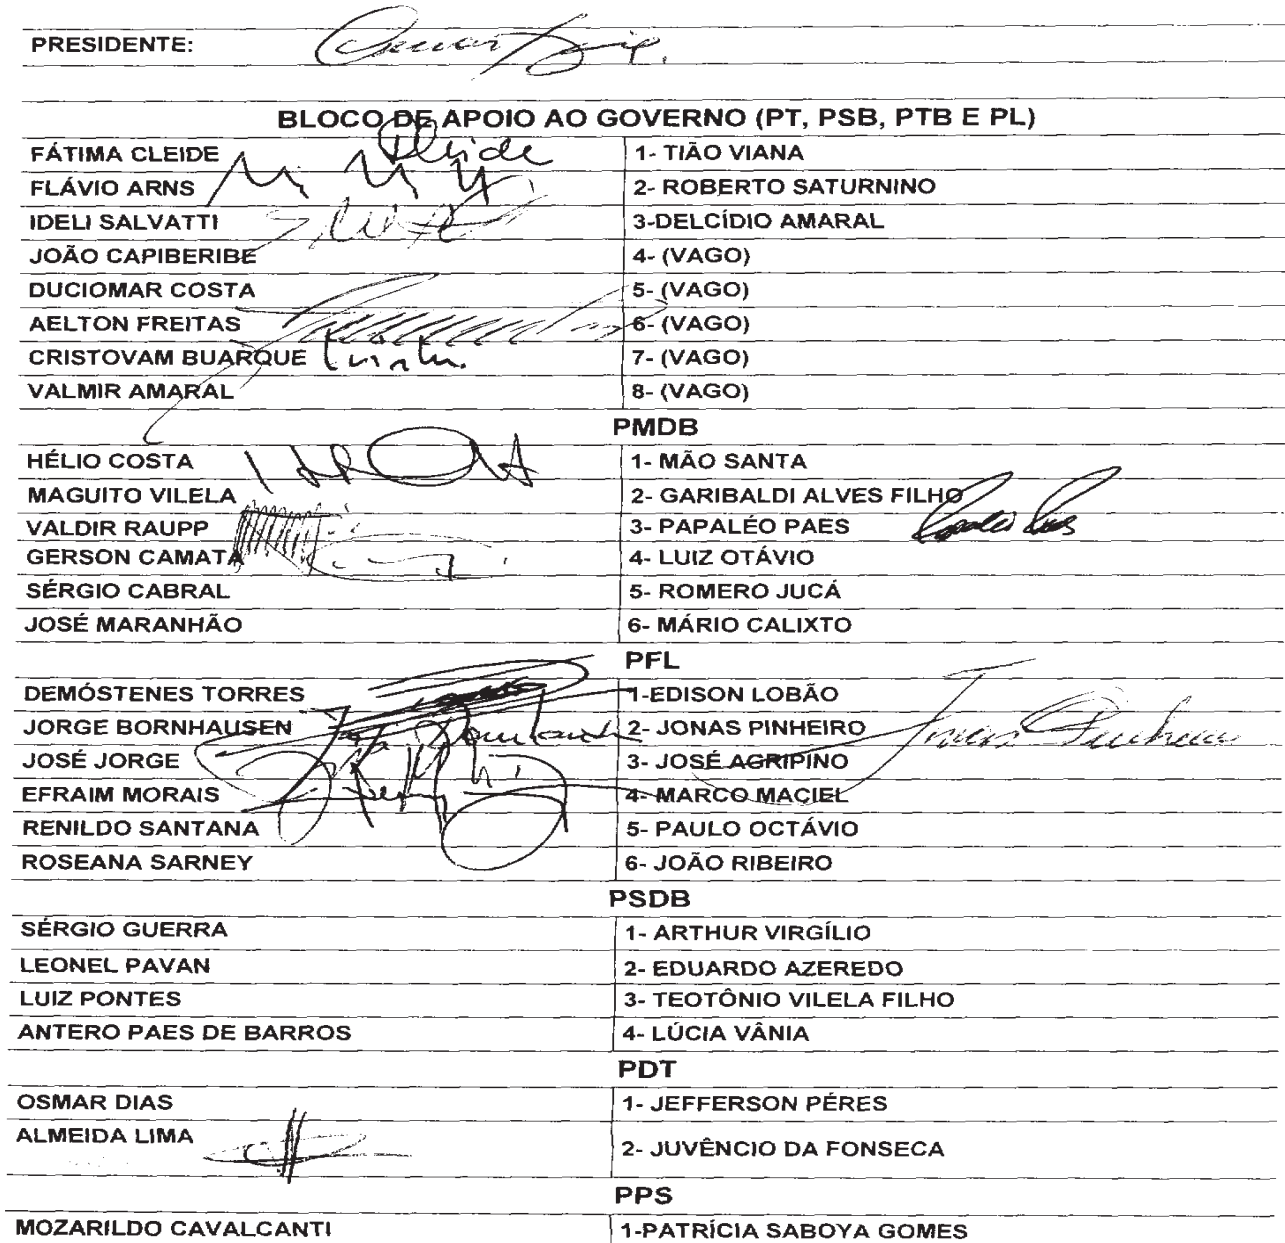 PRESIDENTE:
BLOCO DE APOIO AO GOVERNO (PT, PSB, PTB E PL)
FÁTIMA CLEIDE Cleide 1- TIÃO VIANA
FLÁVIO ARNS 2- ROBERTO SATURNINO
IDELI SALVATTI 3-DELCÍDIO AMARAL
JOÃO CAPIBERIBE 4- (VAGO)
DUCIOMAR COSTA 5- (VAGO)
AELTON FREITAS 6- (VAGO)
CRISTOVAM BUARQUE 7- (VAGO)
VALMIR AMARAL 8- (VAGO)
PMDB
HÉLIO COSTA 1- MÃO SANTA
MAGUITO VILELA 2- GARIBALDI ALVES FILHO
VALDIR RAUPP 3- PAPALÉO PAES
GERSON CAMATA 4- LUIZ OTÁVIO
SÉRGIO CABRAL 5- ROMERO JUCÁ
JOSÉ MARANHÃO 6- MÁRIO CALIXTO
PFL
DEMÓSTENES TORRES 1-EDISON LOBÃO
JORGE BORNHAUSEN 2- JONAS PINHEIRO
JOSÉ JORGE 3- JOSÉ AGRIPINO
EFRAIM MORAIS 4- MARCO MACIEL
RENILDO SANTANA 5- PAULO OCTÁVIO
ROSEANA SARNEY 6- JOÃO RIBEIRO
PSDB
SÉRGIO GUERRA 1- ARTHUR VIRGÍLIO
LEONEL PAVAN 2- EDUARDO AZEREDO
LUIZ PONTES 3- TEOTÔNIO VILELA FILHO
ANTERO PAES DE BARROS 4- LÚCIA VÂNIA
PDT
OSMAR DIAS 1- JEFFERSON PÉRES
ALMEIDA LIMA 2- JUVÊNCIO DA FONSECA
PPS
MOZARILDO CAVALCANTI 1-PATRÍCIA SABOYA GOMES